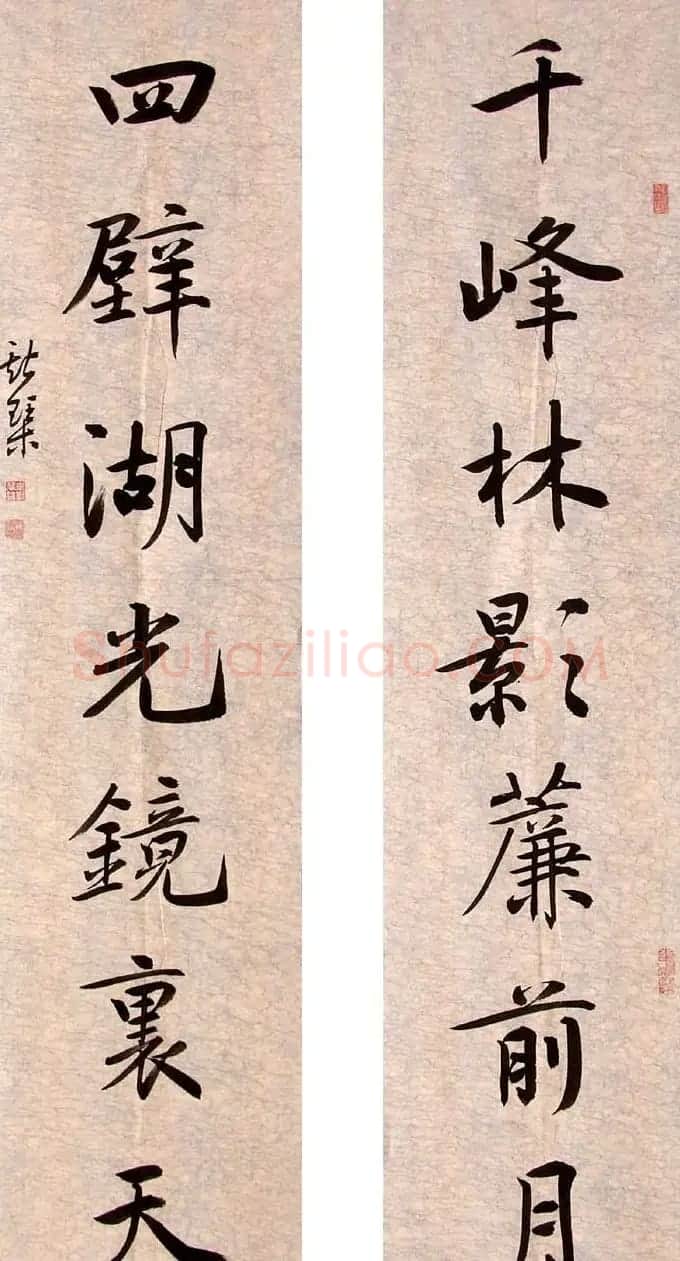 千峰林影薕前月
四壁湖光鏡裏天
Shufaziliao.COM